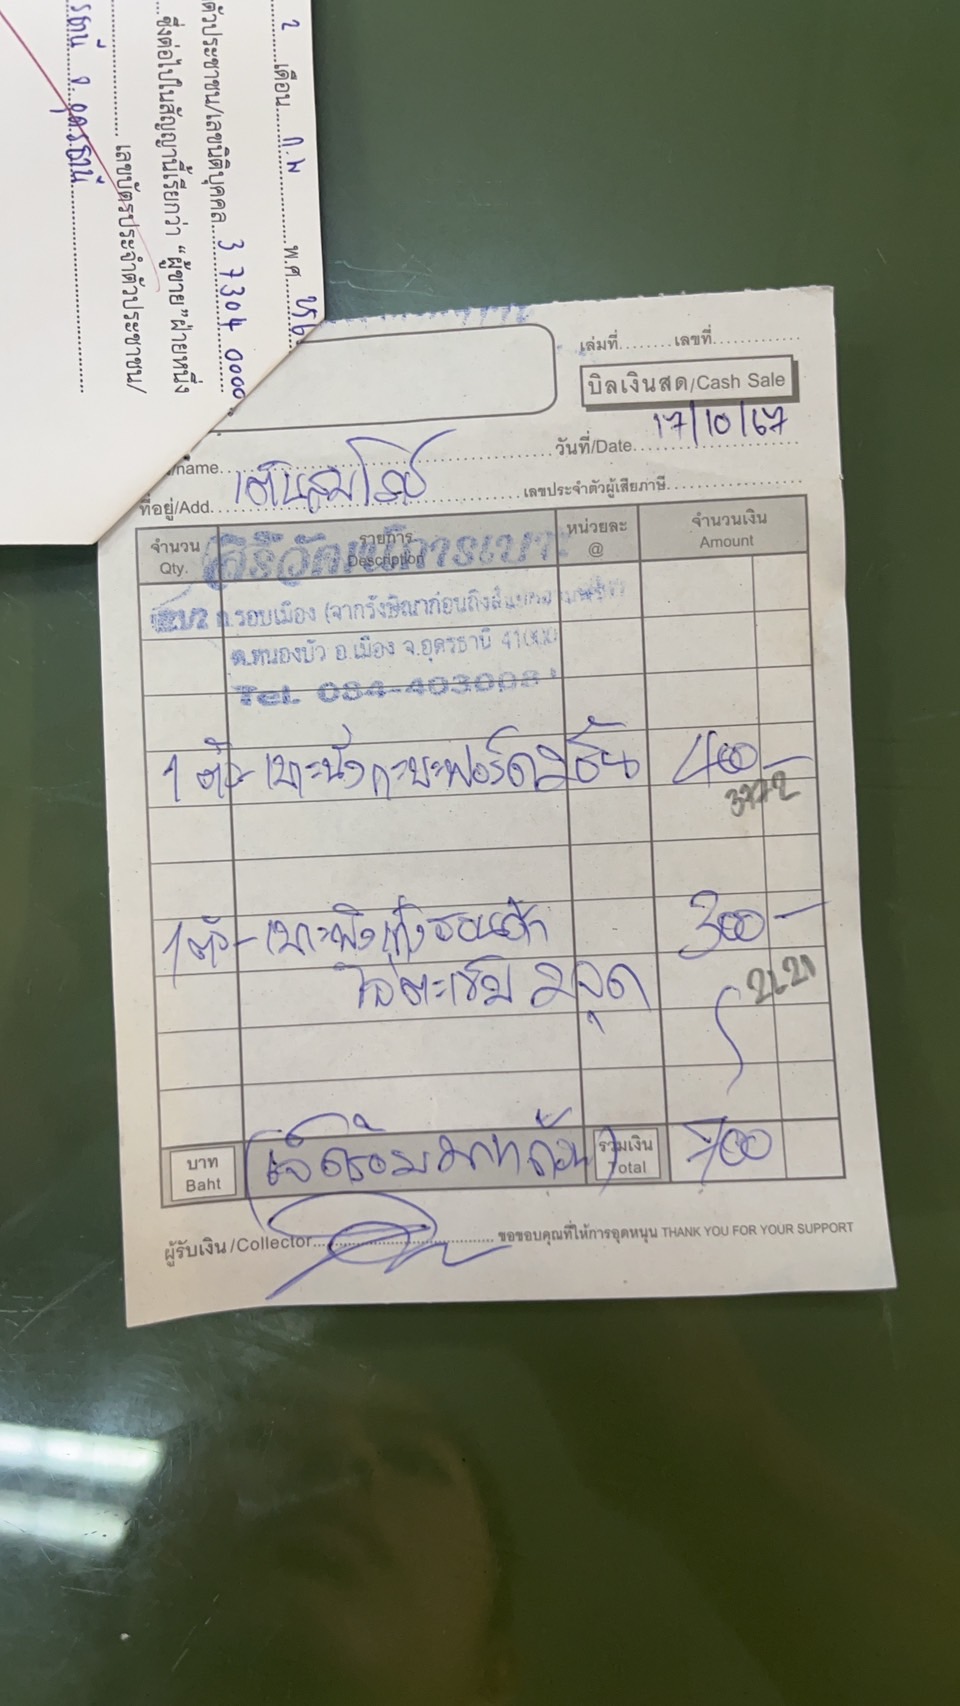 2 เดือน ก.พ พ.ศ.
ตัวประชาชน/เลขนิติบุคคล 3 7304 0000
ซึ่งต่อไปในสัญญานี้เรียกว่า "ผู้ขาย" ฝ่ายหนึ่ง
เลขบัตรประจำตัวประชาชน/
จ. อุดรธานี
เล่มที่ เลขที่
บิลเงินสด/Cash Sale
วันที่/Date 17/10/67
/name
ที่อยู่/Add. เลขประจำตัวผู้เสียภาษี
จำนวน รายการ หน่วยละ จำนวนเงิน
Qty. Description @ Amount
ถ.รอบเมือง (จากรังษิณาก่อนถึง
ต.หนองบัว อ.เมือง จ.อุดรธานี 41000
Tel. 084-403008
1 ตัว - เบาะนั่งกะบะฟอร์ด 400 -
3772
1 ตัว - เบาะพิง 300 -
2121
บาท เจ็ดร้อยบาทถ้วน รวมเงิน 700
Baht Total
ผู้รับเงิน/Collector ขอขอบคุณที่ให้การอุดหนุน THANK YOU FOR YOUR SUPPORT